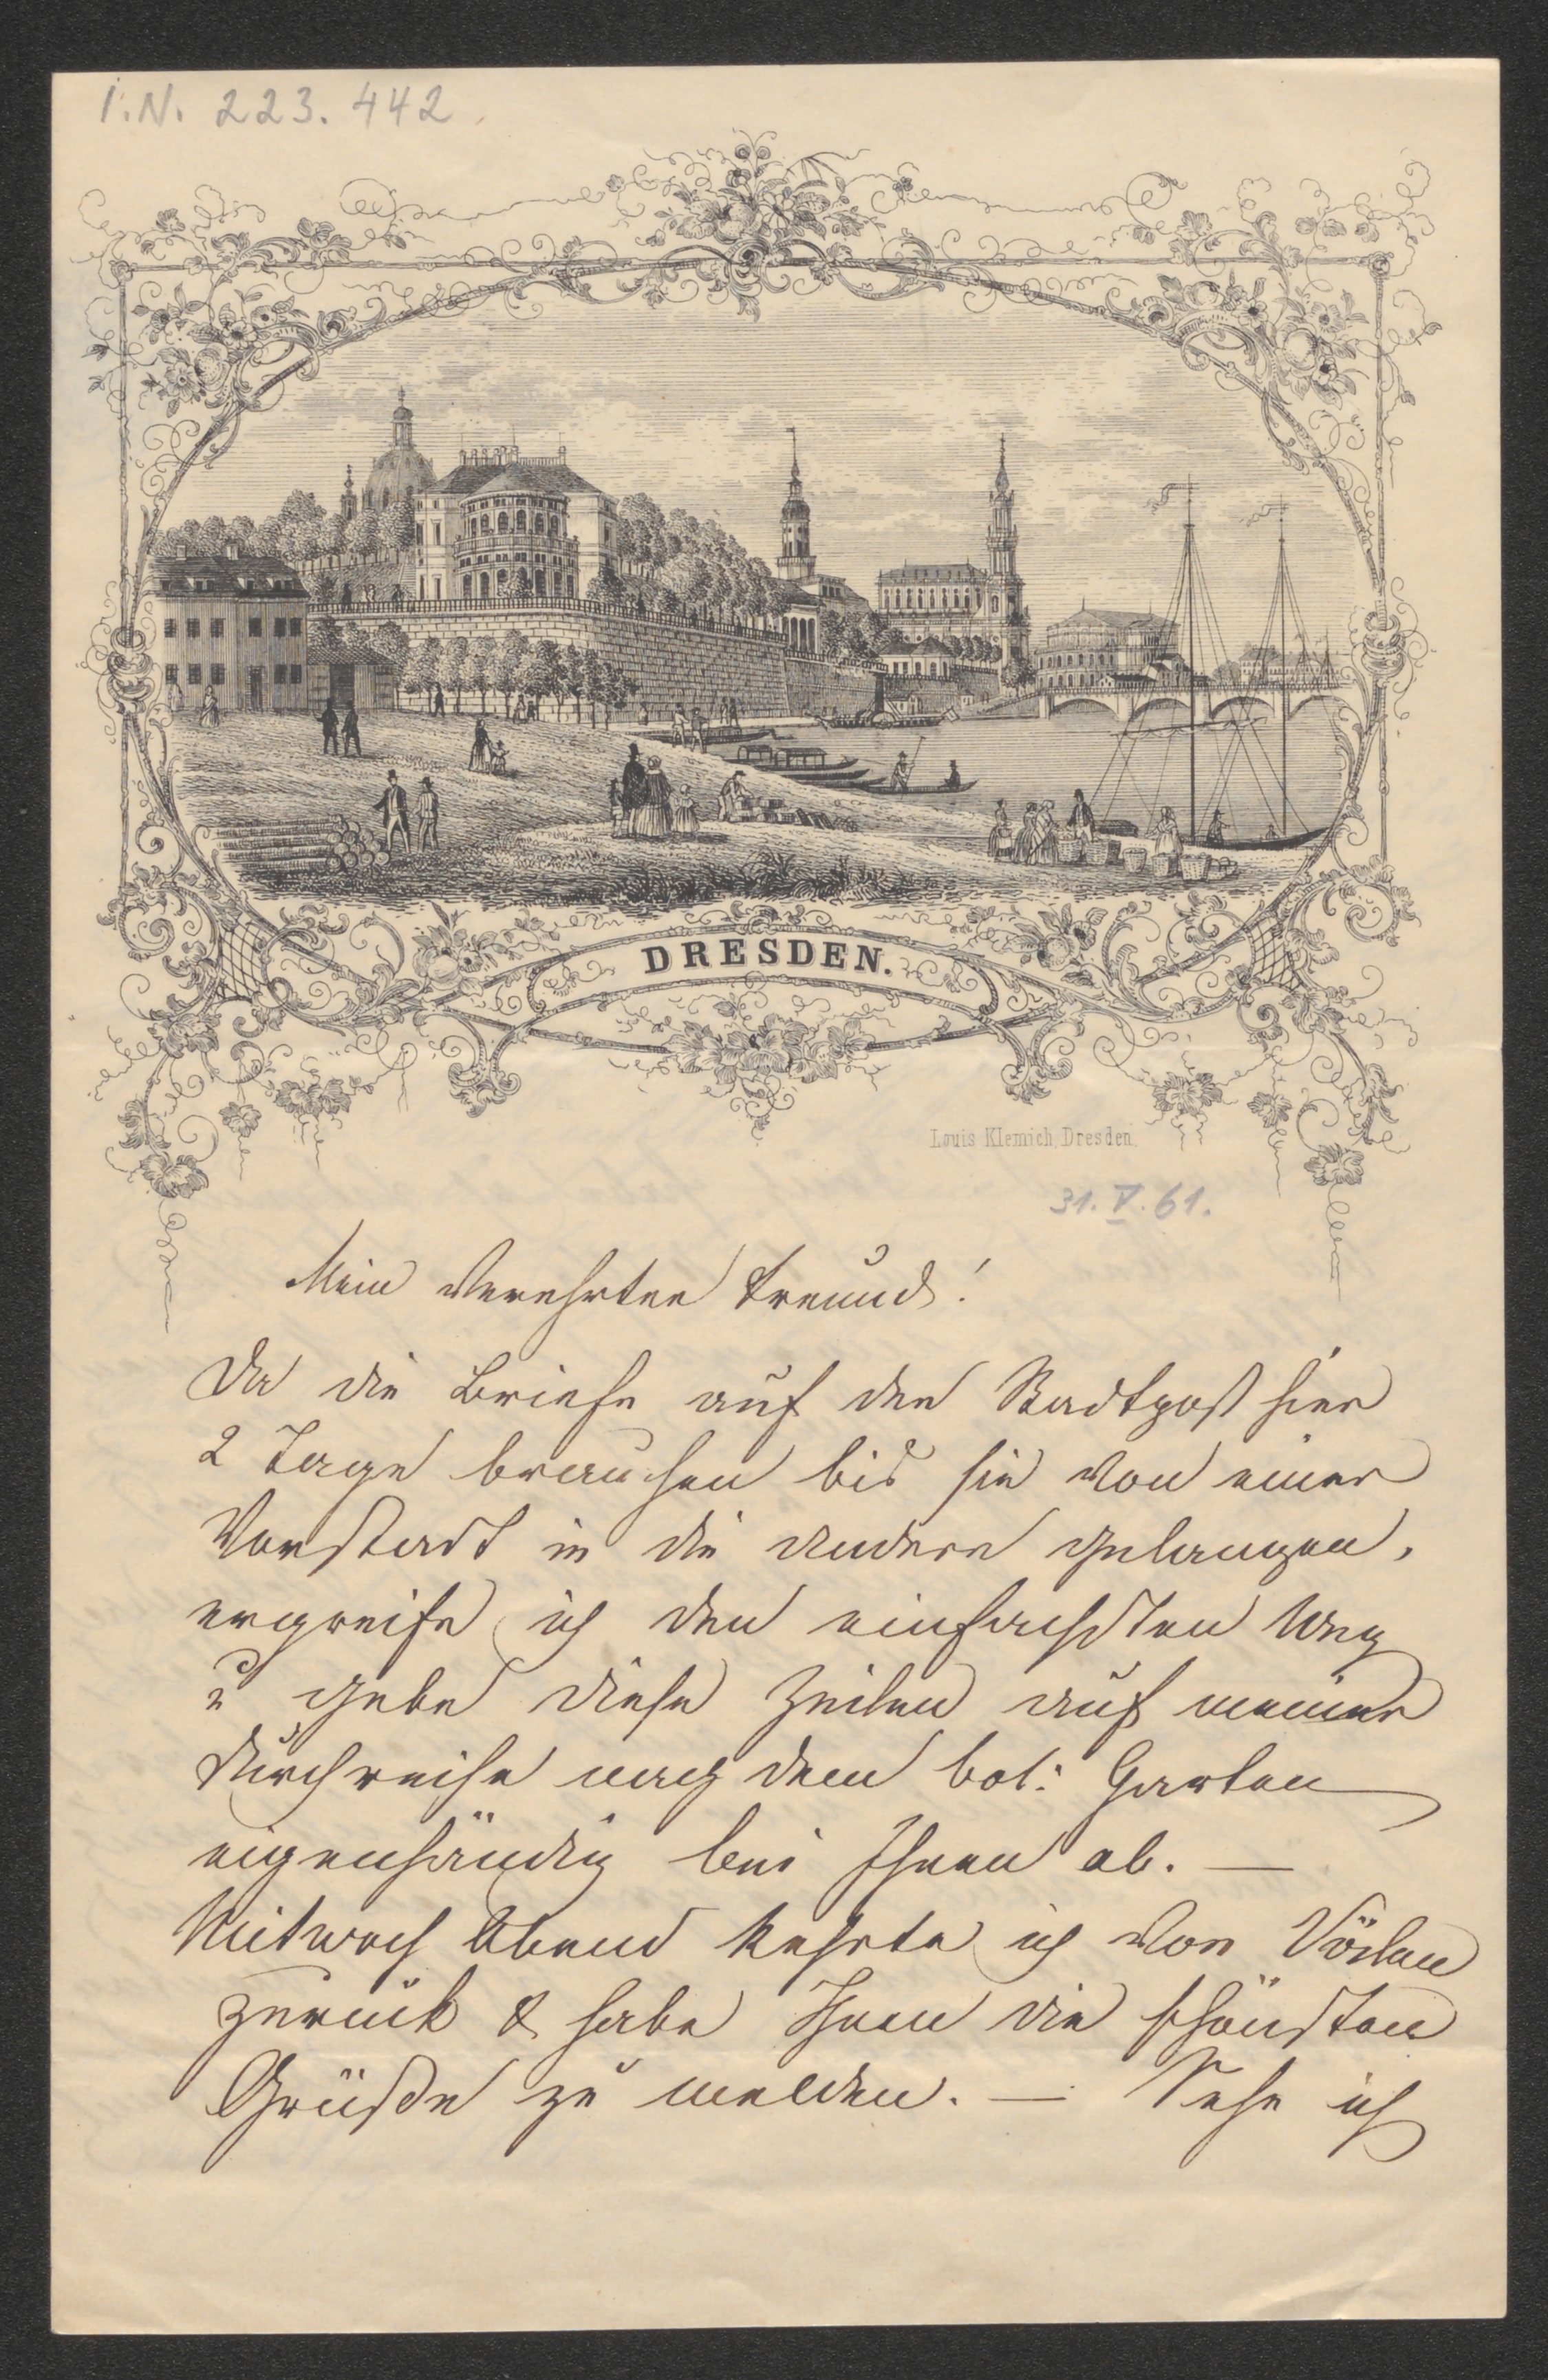 I.N. 223.442
DRESDEN.
Louis Klemich, Dresden
31.V.61.
Mein verehrter Freund!
Da die Briefe auf der Stadtpost hier
2 Tage brauchen bis sie von einer
Vorstadt in die andere gelangen,
ergreife ich den einfachsten Weg
u gebe diese Zeilen auf meiner
Durchreise nach dem bot: Garten
eigenhändig bei Ihnen ab. —
Mitwoch Abend kehrte ich von Vöslau
zurück & habe Ihnen die schönsten
Grüße zu melden. — Sehe ich